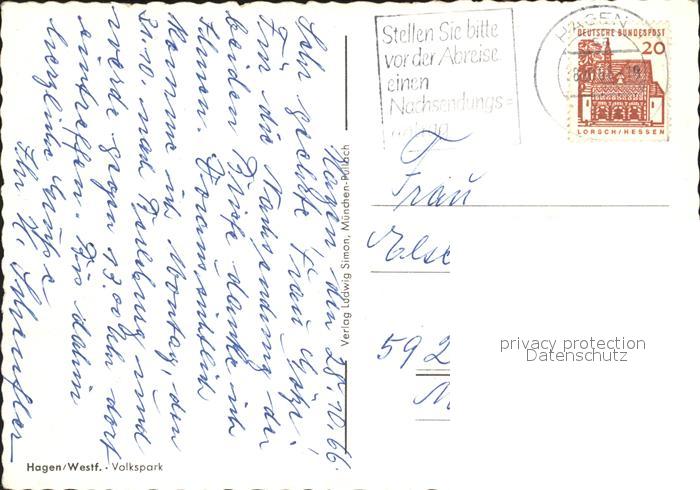 Stellen Sie bitte
vor der Abreise
einen
Nachsendungs=
HAGEN
DEUTSCHE BUNDESPOST
20
LORSCH/HESSEN
Hagen den 28.10.66
Sehr geehrte Frau
Für die Nachsendung der
beiden Briefe danke ich
Ihnen. Voraussichtlich
komme ich Montag, den
31.10. nach und
werde gegen 13.00 Uhr dort
eintreffen. Bis dahin
herzliche Grüße
Ihr H.
Verlag Ludwig Simon, München-Pullach
Frau
Else
592
privacy protection
Datenschutz
Hagen/Westf. · Volkspark